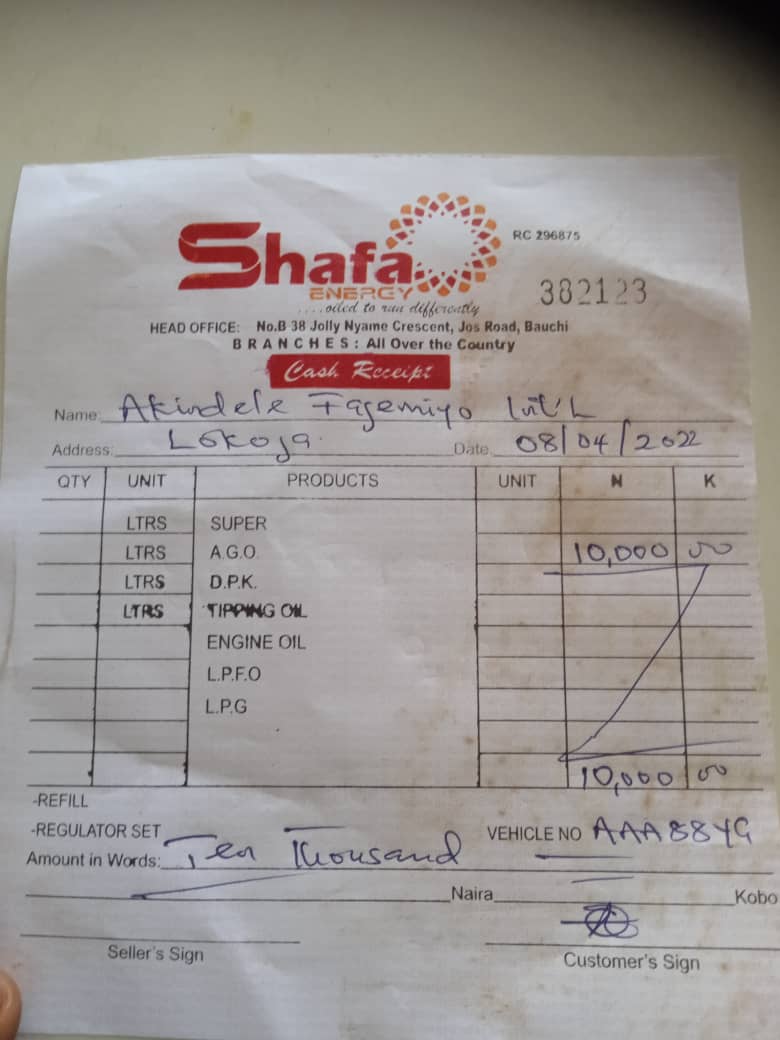 Shafa
ENERGY
RC 296875
....oiled to run differently
382123
HEAD OFFICE: No.B 38 Jolly Nyame Crescent, Jos Road, Bauchi
BRANCHES: All Over the Country
Cash Receipt
Name: Akindele Fagemiyo Int'L
Address: Lokoja Date 08/04/2022
QTY UNIT PRODUCTS UNIT ₦ K
LTRS SUPER
LTRS A.G.O. 10,000 00
LTRS D.P.K.
LTRS TIPPING OIL
ENGINE OIL
L.P.F.O
L.P.G
10,000 00
-REFILL
-REGULATOR SET VEHICLE NO AAA88YG
Amount in Words: Ten Thousand
Naira Kobo
Seller's Sign Customer's Sign